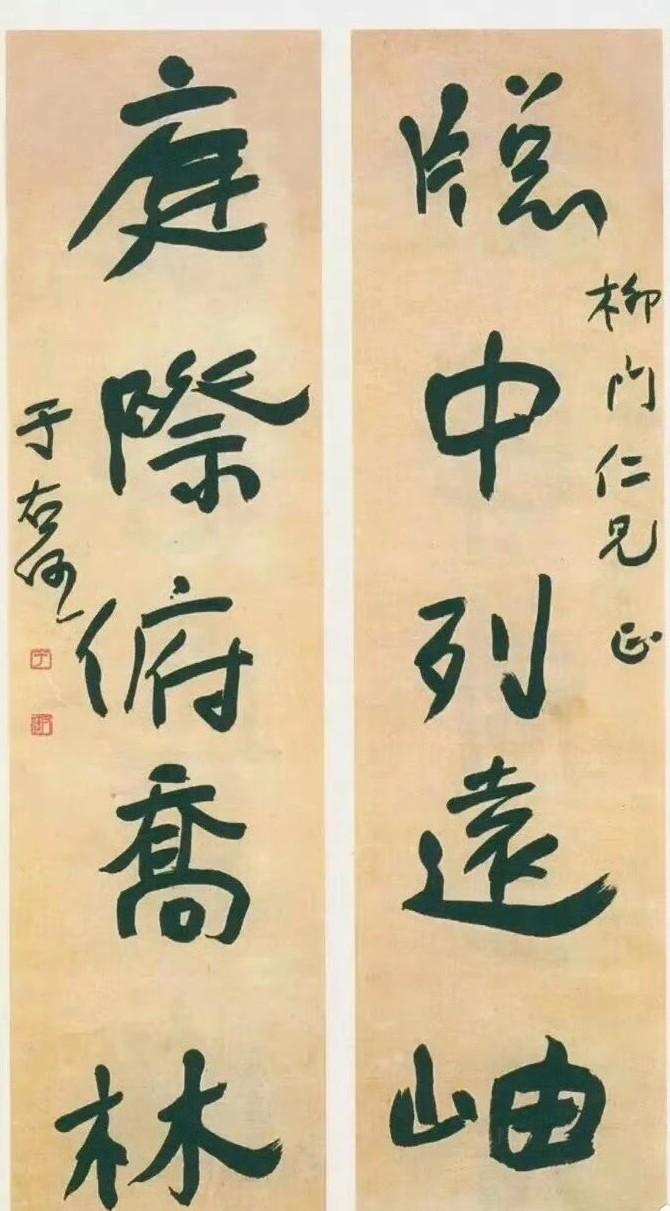 牕中列遠岫
柳門仁兄正
庭際俯喬林
于右任